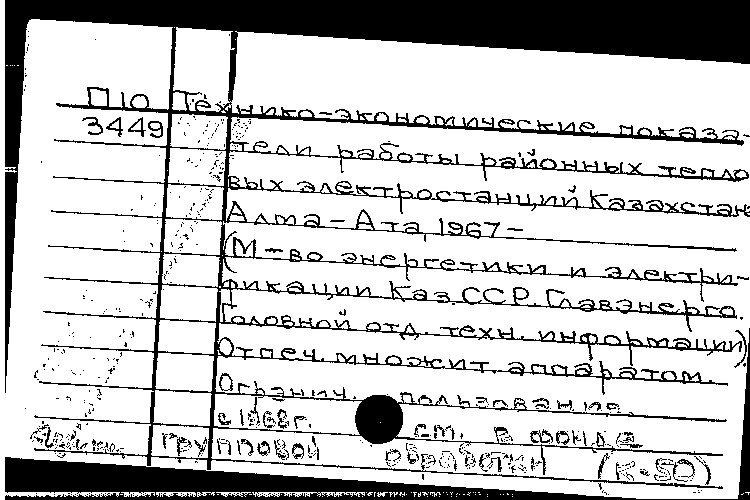 П10 Технико-экономические показа-
3449
тели работы районных тепло
вых электростанций Казахстан
Алма-Ата, 1967-
(М-во энергетики и электри-
фикации Каз.ССР. Главэнерго.
Головной отд. техн. информации)
Отпеч. множит. аппаратом.
Огранич. пользования.
с 1968г. см. в фонде
групповой обработки (К-50)